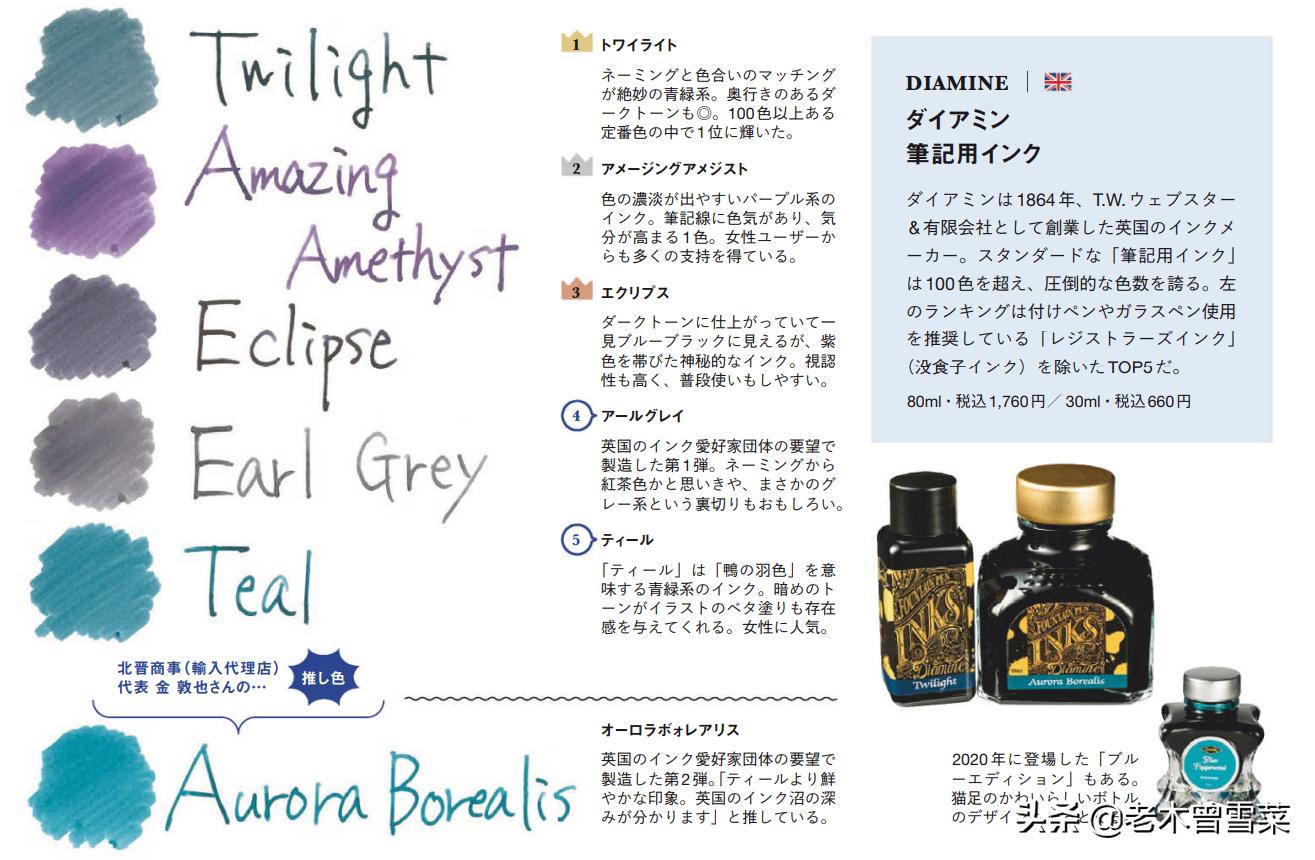 Twilight
Amazing
Amethyst
Eclipse
Earl Grey
Teal
北晋商事（輸入代理店）
代表 金 敦也さんの…
推し色
Aurora Borealis
1 トワイライト
ネーミングと色合いのマッチング
が絶妙の青緑系。奥行きのあるダ
ークトーンも◎。100色以上ある
定番色の中で1位に輝いた。
2 アメージングアメジスト
色の濃淡が出やすいパープル系の
インク。筆記線に色気があり、気
分が高まる1色。女性ユーザーか
らも多くの支持を得ている。
3 エクリプス
ダークトーンに仕上がっていて一
見ブルーブラックに見えるが、紫
色を帯びた神秘的なインク。視認
性も高く、普段使いもしやすい。
4 アールグレイ
英国のインク愛好家団体の要望で
製造した第1弾。ネーミングから
紅茶色かと思いきや、まさかのグ
レー系という裏切りもおもしろい。
5 ティール
「ティール」は「鴨の羽色」を意
味する青緑系のインク。暗めのト
ーンがイラストのベタ塗りも存在
感を与えてくれる。女性に人気。
オーロラボォレアリス
英国のインク愛好家団体の要望で
製造した第2弾。「ティールより鮮
やかな印象。英国のインク沼の深
みが分かります」と推している。
DIAMINE
ダイアミン
筆記用インク
ダイアミンは1864年、T.W.ウェブスター
＆有限会社として創業した英国のインクメ
ーカー。スタンダードな「筆記用インク」
は100色を超え、圧倒的な色数を誇る。左
のランキングは付けペンやガラスペン使用
を推奨している「レジストラーズインク」
（没食子インク）を除いたTOP5だ。
80ml・税込1,760円／30ml・税込660円
FOUNTAIN PEN
INKS
Diamine
Twilight
FOUNTAIN PEN
INKS
Diamine
Aurora Borealis
Blue
Peppermint
2020年に登場した「ブル
ーエディション」もある。
猫足のかわいらしいボトル
のデザイ
头条 @老木曾雪菜